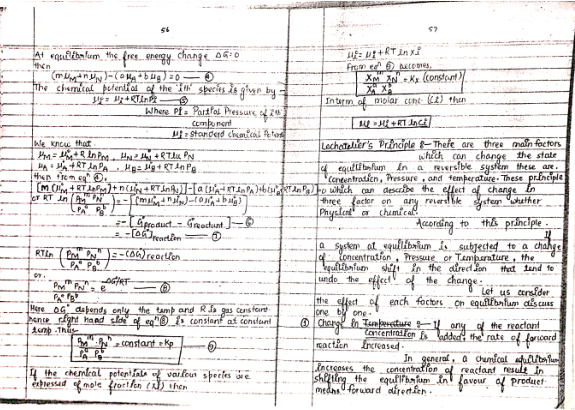 56
At equilibrium the free energy change ΔG=0
then
(mμM+nμN)-(aμA+bμB)=0 —④
The chemical potential of the 'ith' species is given by -
μi = μi+RTlnPi —⑤
Where Pi = Partial Pressure of ith
component
μi = Standerd chemical Poten
We know that.
μM = μ°M + R ln PM , μN = μ°N + RT ln PN
μA = μ°A + RT ln PA , μB = μ°B + RT ln PB
then from eqn ⑤,
[m(μ°M+RTlnPM)+n(μ°N+RTlnPN)]-[a(μ°A+RTlnPA)+b(μ°B+RTlnPB)]=0
or RT ln [PM^m PN^n / PA^a PB^b] = -[(mμ°M+nμ°N)-(aμ°A+bμ°B)]
= -[G°product - G°reactant] —⑥
= -(ΔG°)reaction —⑦
RTln (PM^m PN^n / PA^a PB^b) = -(ΔG°)reaction
or.
PM^m PN^n / PA^a PB^b = e^-ΔG°/RT —⑧
Here ΔG° depends only the temp and R is gas constant
hence right hand side of eqn ⑧ is constant at constant
temp. Thus
PM^m . PN^n / PA^a PB^b = constant = Kp —⑨
If the chemical potentials of various species are
expressed of mole fraction (xi) then
57
μi = μi + RT ln xi
From eqn ⑧ becomes,
XM^m XN^n / XA^a XB^b = Kx (constant)
Interm of molar conc. (Ci) then
μi = μi + RT ln Ci
Lechatelier's Principle :- There are three main factors
which can change the state
of equilibrium in a reversible system these are.
concentration, Pressure, and temperature. These principle
which can describe the effect of change in
three factor on any reversible system whether
Physical or chemical.
According to this principle.
If
a system at equilibrium is subjected to a change
of concentration, Pressure or Temperature, the
equilibrium shift in the direction that tend to
undo the effect of the change.
Let us consider
the effect of each factors on equilibrium discuss
one by one.
① Change in Temperature :- If any of the reactant
concentration is added, the rate of forward
reaction increased.
In general, a chemical equilibrium
increases the concentration of reactant result in
shifting the equilibrium in favour of product
means forward direction.